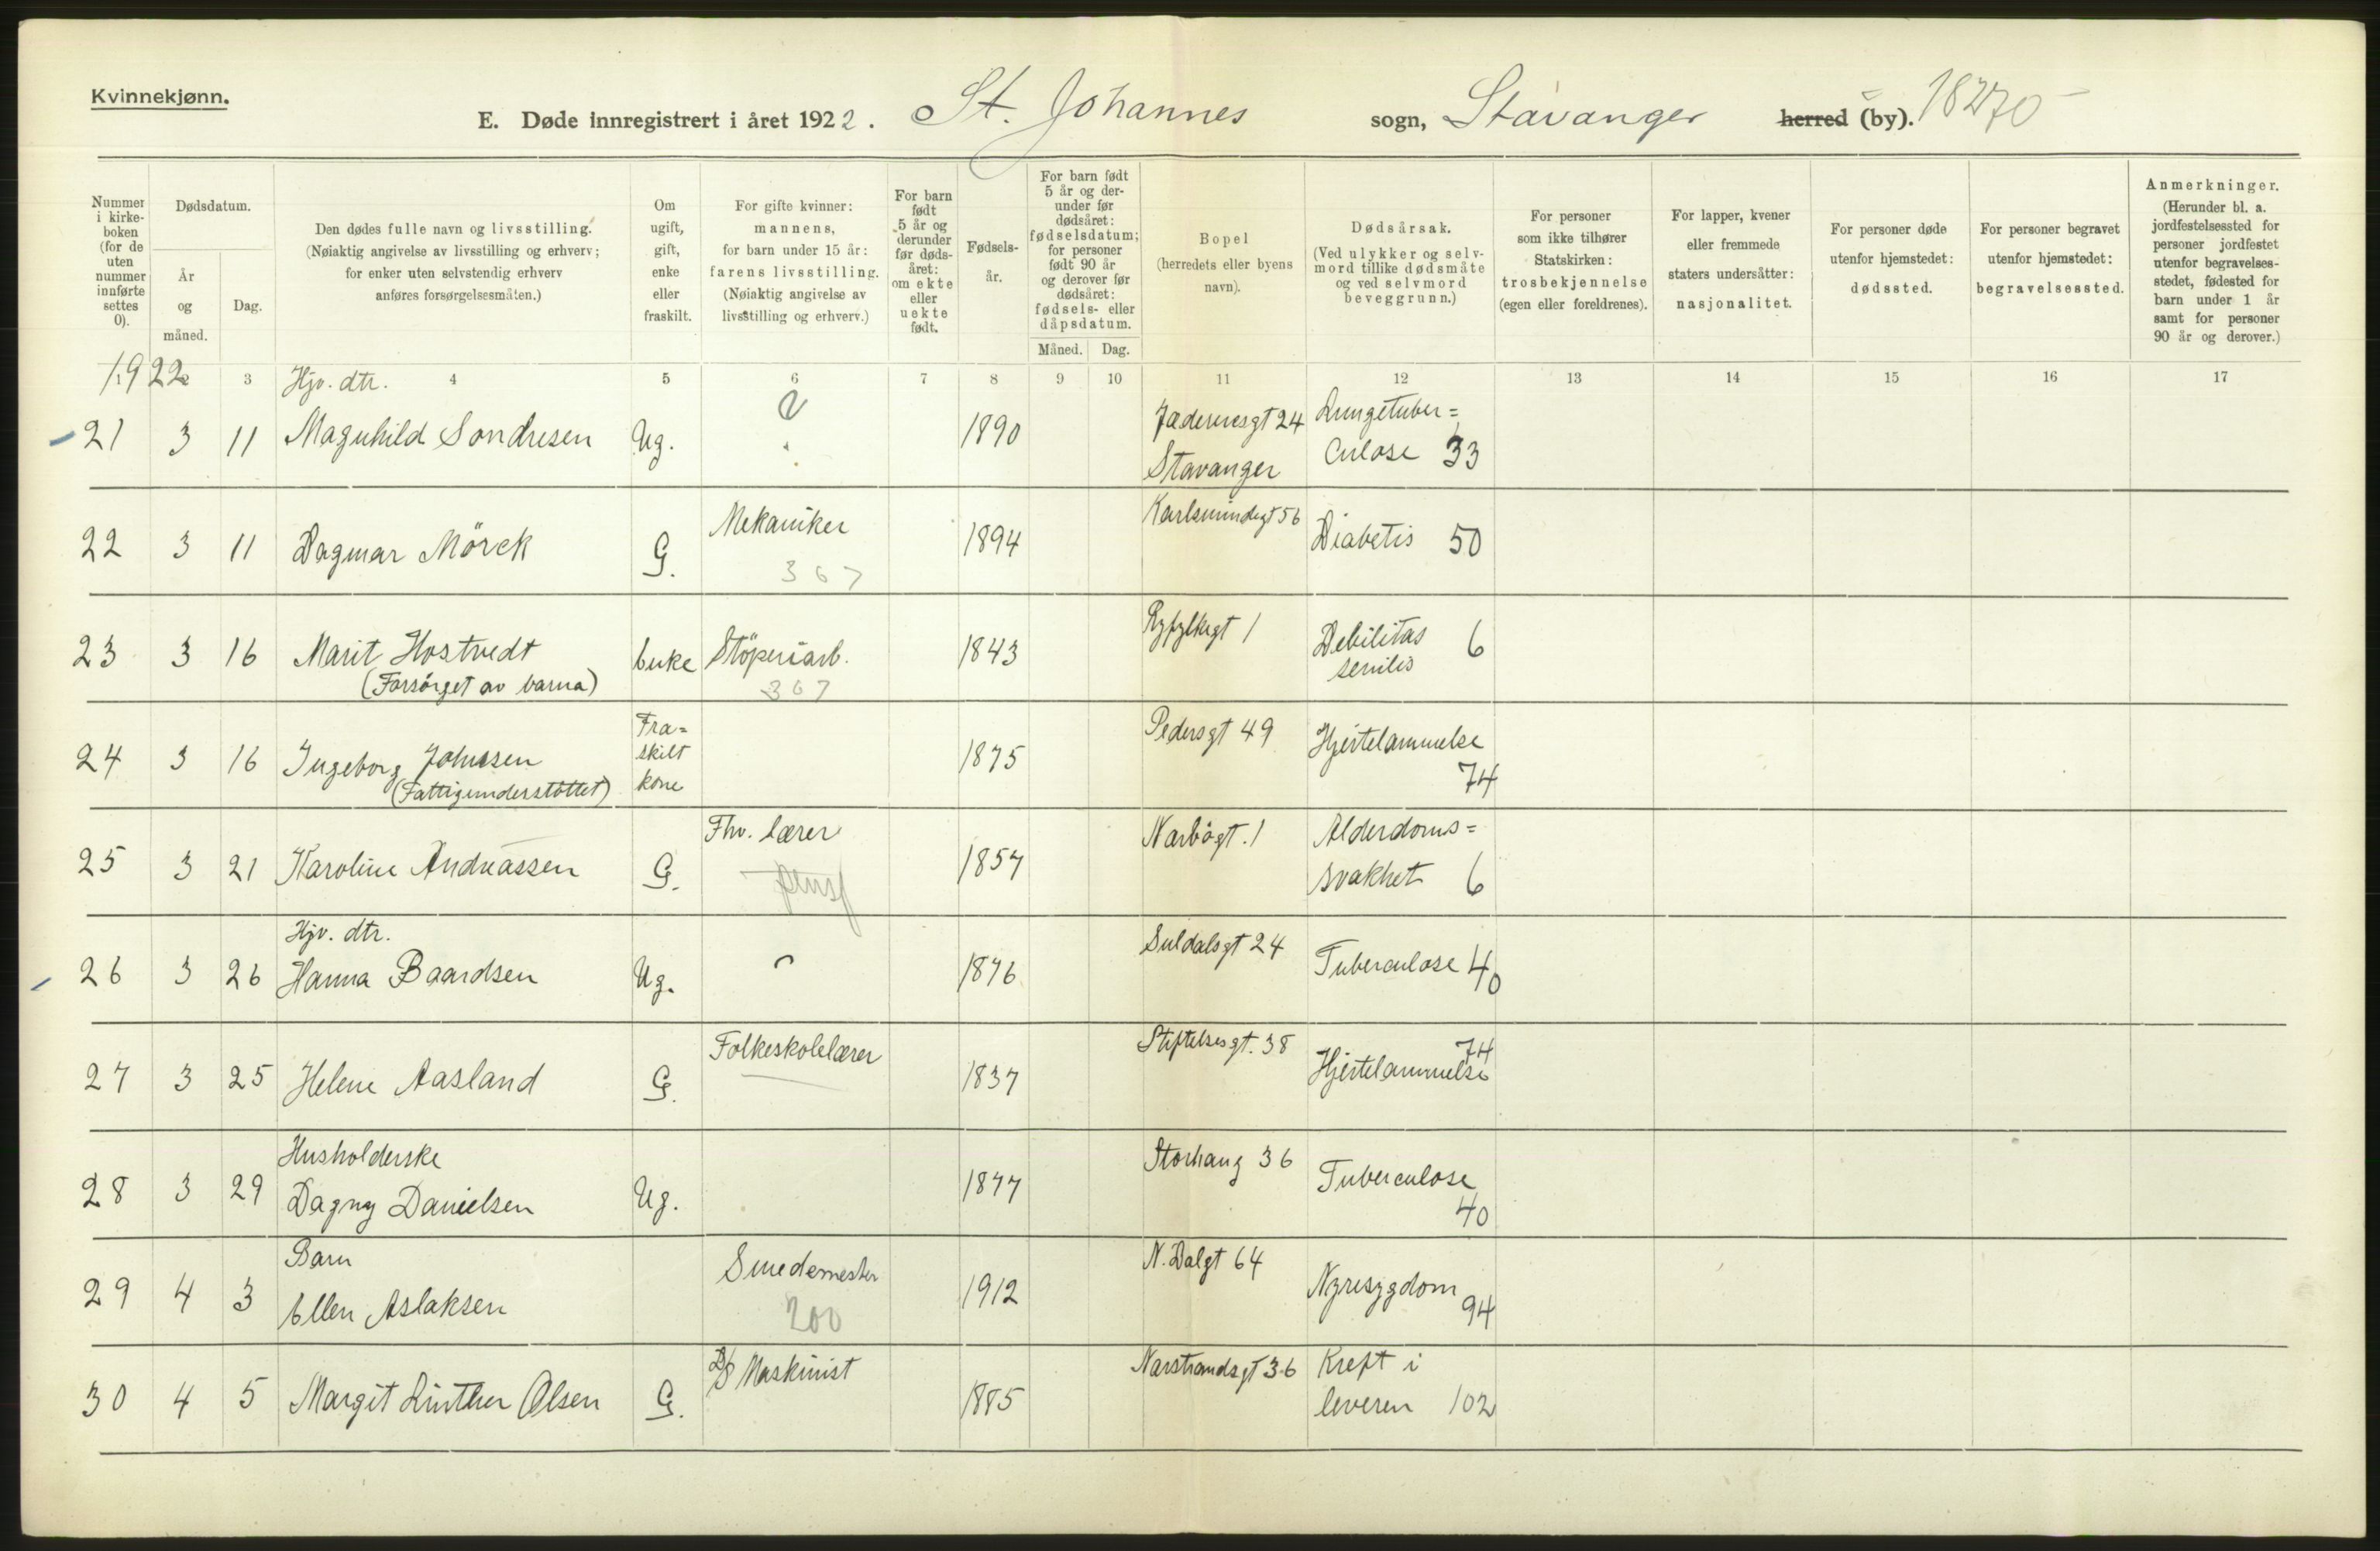 Kvinnekjønn.
E. Døde innregistrert i året 1922. St. Johannes sogn, Stavanger herred (by). 18270
Nummer i kirkeboken (for de uten nummer innførte settes 0).
Dødsdatum.
År og måned.
Dag.
Den dødes fulle navn og livsstilling.
(Nøiaktig angivelse av livsstilling og erhverv;
for enker uten selvstendig erhverv
anføres forsørgelsesmåten.)
Om
ugift,
gift,
enke
eller
fraskilt.
For gifte kvinner:
mannens,
for barn under 15 år:
farens livsstilling.
(Nøiaktig angivelse av
livsstilling og erhverv.)
For barn
født
5 år og
derunder
før døds-
året:
om ekte
eller
uekte
født.
Fødsels-
år.
For barn født
5 år og der-
under før
dødsåret:
fødselsdatum;
for personer
født 90 år
og derover før
dødsåret:
fødsels- eller
dåpsdatum.
Måned. Dag.
Bopel
(herredets eller byens
navn).
Dødsårsak.
(Ved ulykker og selv-
mord tillike dødsmåte
og ved selvmord
beveggrunn.)
For personer
som ikke tilhører
Statskirken:
trosbekjennelse
(egen eller foreldrenes).
For lapper, kvener
eller fremmede
staters undersåtter:
nasjonalitet.
For personer døde
utenfor hjemstedet:
dødssted.
For personer begravet
utenfor hjemstedet:
begravelsessted.
Anmerkninger.
(Herunder bl. a.
jordfestelsessted for
personer jordfestet
utenfor begravelses-
stedet, fødested for
barn under 1 år
samt for personer
90 år og derover.)
1922 3 4 5 6 7 8 9 10 11 12 13 14 15 16 17
Hjv. dtr.
21 3 11 Magnhild Sondresen Ug. 1890 Jæderensgt 24 Stavanger Lungetuber=culose 33
22 3 11 Dagmar Mörck G. Mekaniker 367 1894 Karlsmindegt 56 Diabetis 50
23 3 16 Marit Hostvedt (Forsörget av barna) Enke Støperiarb. 367 1843 Ryfylkegt 1 Debilitas senilis 6
24 3 16 Ingeborg Johnsen (Fattigunderstöttet) Fra=skilt kone 1875 Pedersgt 49 Hjertelammelse 74
25 3 21 Karoline Andreassen G. Fhv. lærer pensj 1857 Narbögt. 1 Alderdoms=svakhet 6
Hjv. dtr.
26 3 26 Hanna Baardsen Ug. 1876 Suldalsgt 24 Tuberculose 40
27 3 25 Helene Aasland G. Folkeskolelærer 1837 Stiftelsesgt. 38 Hjertelammelse 74
Husholderske
28 3 29 Dagny Danielsen Ug. 1877 Storhaug 36 Tuberculose 40
Barn
29 4 3 Ellen Aslaksen Smedemester 200 1912 N. Dalgt 64 Nyresygdom 94
30 4 5 Margit Linther Olsen G. D/S Maskinist 1885 Narstrandsgt 36 Kreft i leveren 102